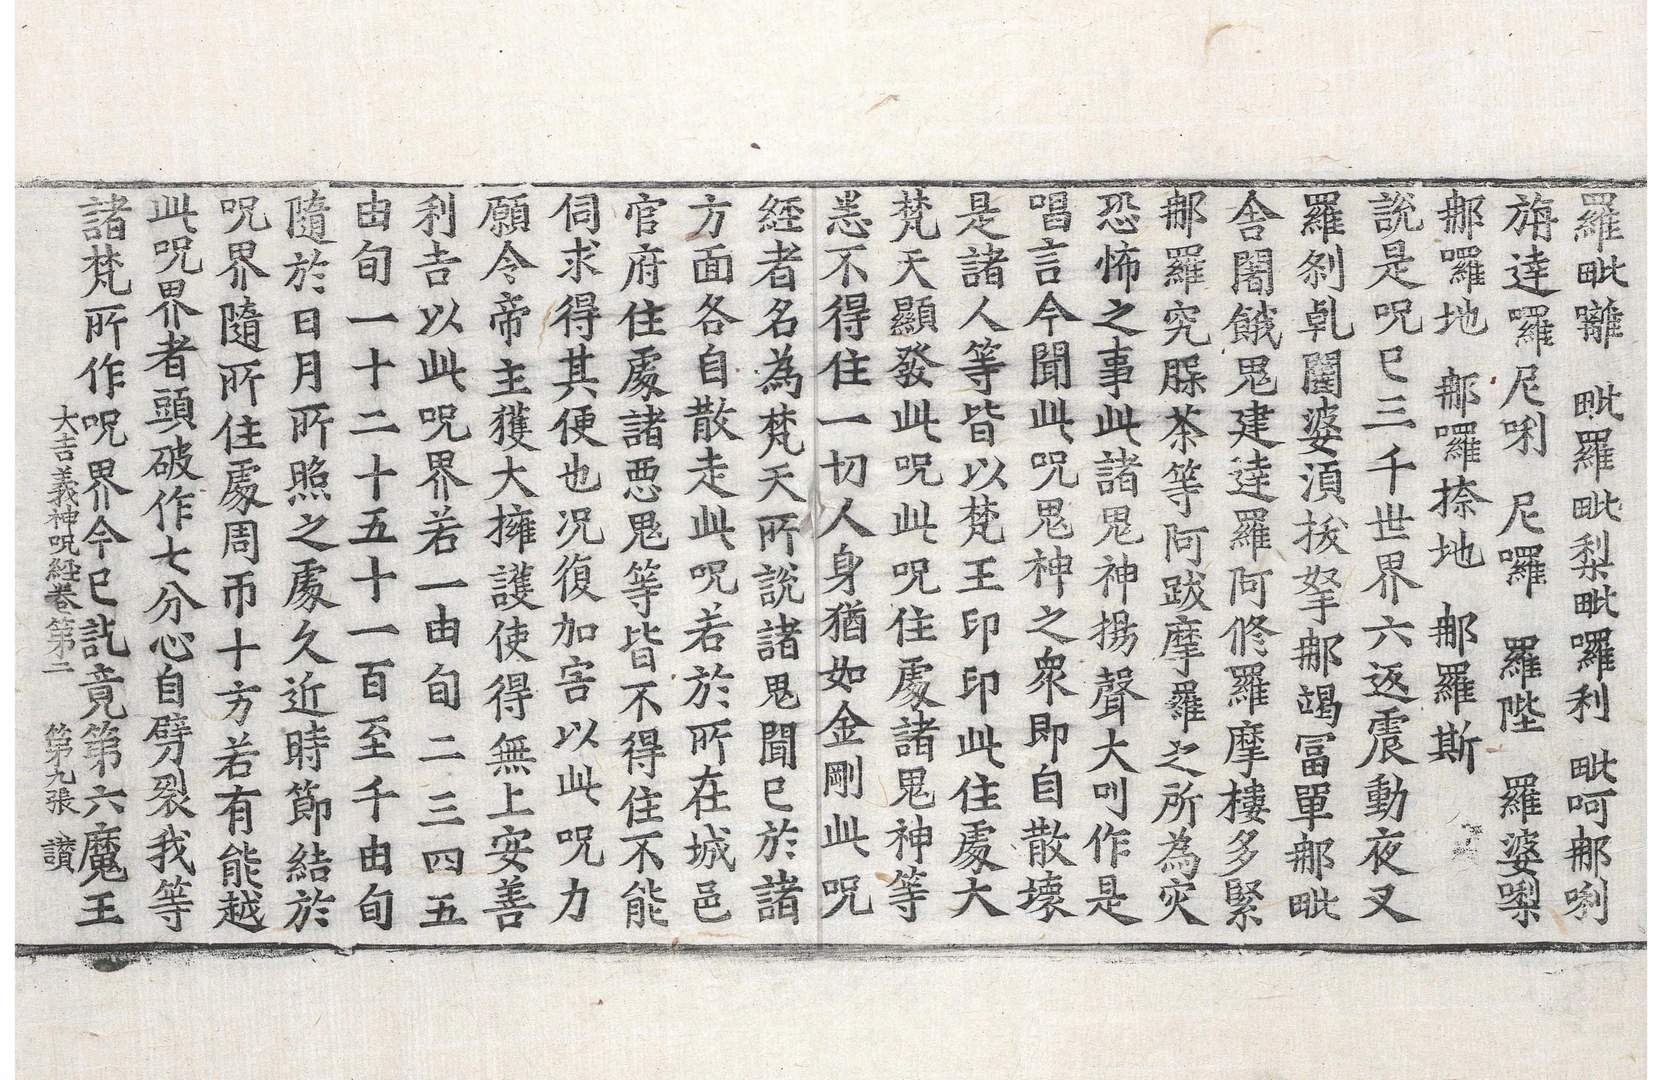 羅毗囄　毗羅毗梨毗囉利　毗呵那唎
旃達囉尼唎　尼囉　羅陛　羅婆㗚
那囉地　那囉捺地　那羅斯
說是呪已三千世界六返震動夜叉
羅剎乹闥婆湏拔拏那竭冨單那毗
舍闍餓鬼建達羅阿修羅摩樓多緊
那羅究腬茶等阿跋摩羅之所為灾
恐怖之事此諸鬼神揚聲大叫作是
唱言今聞此呪鬼神之衆即自散壞
是諸人等皆以梵王印印此住處大
梵天顯發此呪此呪住處諸鬼神等
恙不得住一切人身猶如金剛此呪
經者名為梵天所說諸鬼聞已於諸
方面各自散走此呪若於所在城邑
官府住處諸惡鬼等皆不得住不能
伺求得其便也况復加害以此呪力
願令帝主獲大擁護使得無上安善
利吉以此呪界若一由旬二三四五
由旬一十二十五十一百至千由旬
隨於日月所照之處久近時節結於
呪界隨所住處周帀十方若有能越
此呪界者頭破作七分心自劈裂我等
諸梵所作呪界今已訖竟第六魔王
大吉義神呪經卷第二　第九張　讃